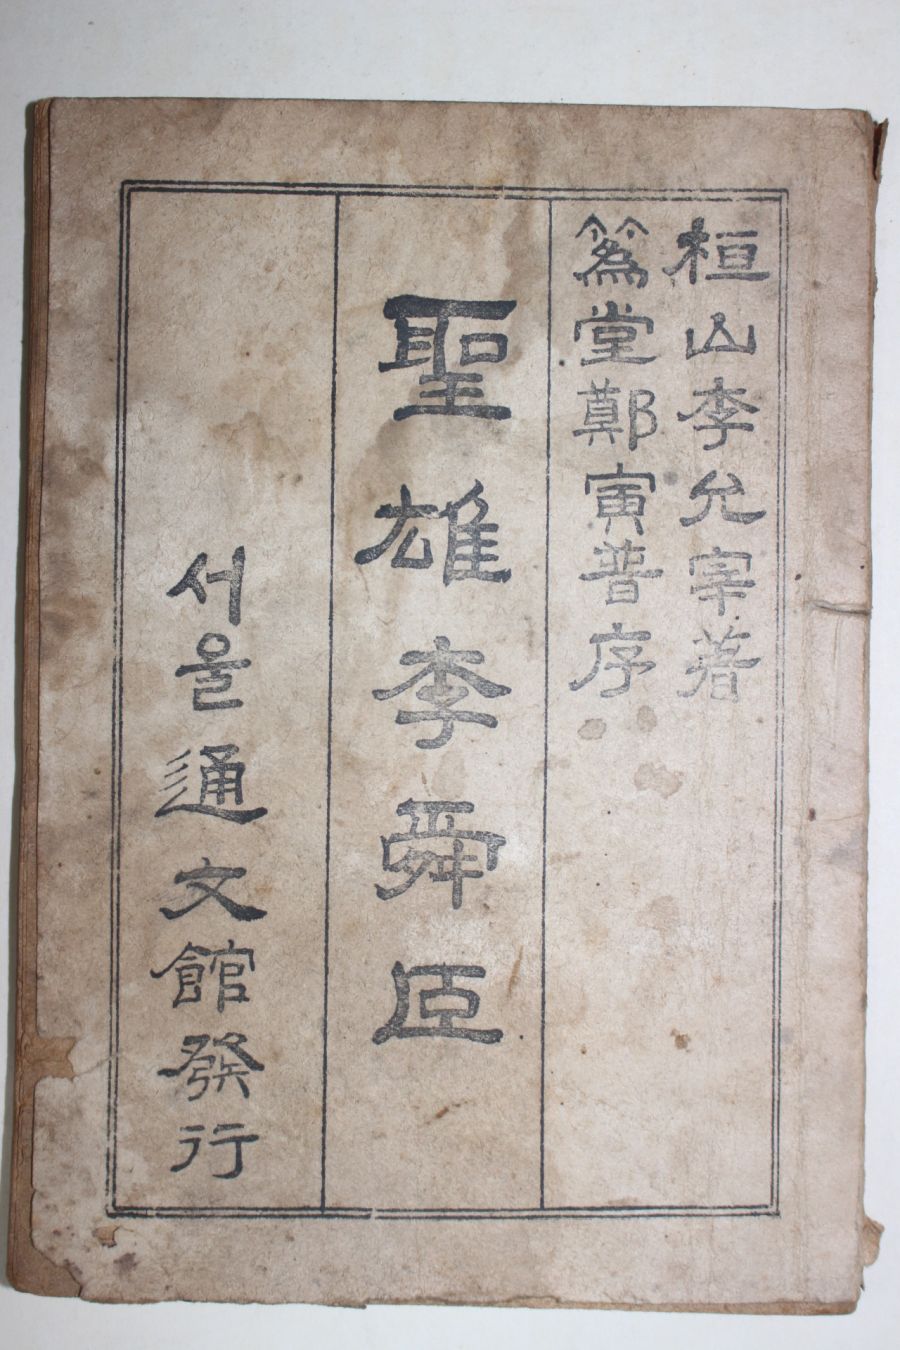 桓山李允宰著
薝堂鄭寅普序
聖雄李舜臣
서울通文館發行